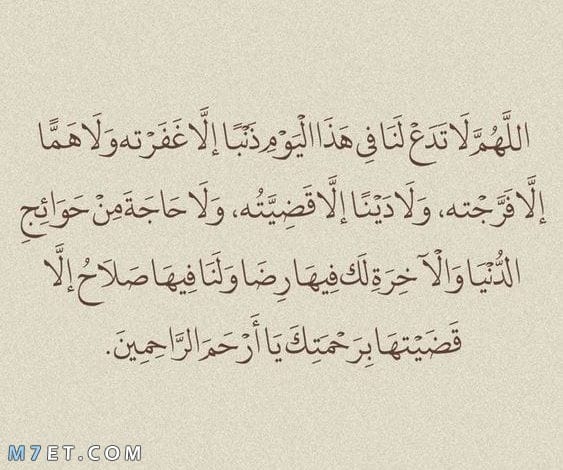 اللَّهُمَّ لَا تَدَعْ لَنَا فِي هَذَا الْيَوْمِ ذَنْبًا إلَّا غَفَرْته وَلَا هَمًّا
إلَّا فَرَّجْته، وَلَا دَيْنًا إلَّا قَضِيَّتُه، وَلَا حَاجَةَ مِنْ حَوَائِجِ
الدُّنْيَا وَالْآخِرَةِ لَك فِيهَا رِضَا وَلَنَا فِيهَا صَلَاحُ إلَّا
قَضَيْتهَا بِرَحْمَتِكَ يَا أَرْحَمَ الرَّاحِمِينَ.
M7ET.COM